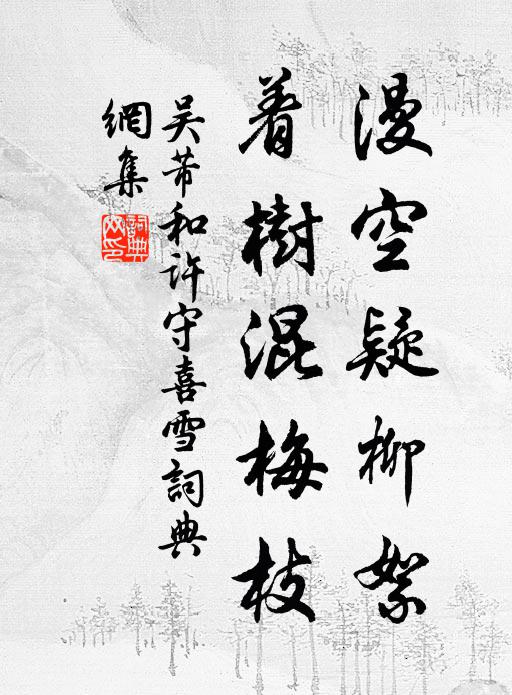 漫空疑柳絮
着樹混梅枝
吴芾和許守喜雪詞典
網集
詞典
网印